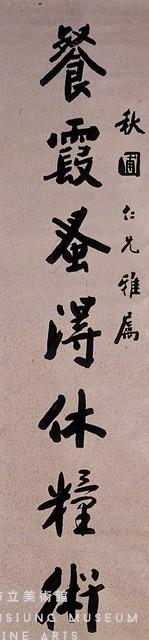 秋圃仁兄雅屬
餐霞蚤得休糧術
市立美術館
HSIUNG MUSEUM
FINE ARTS